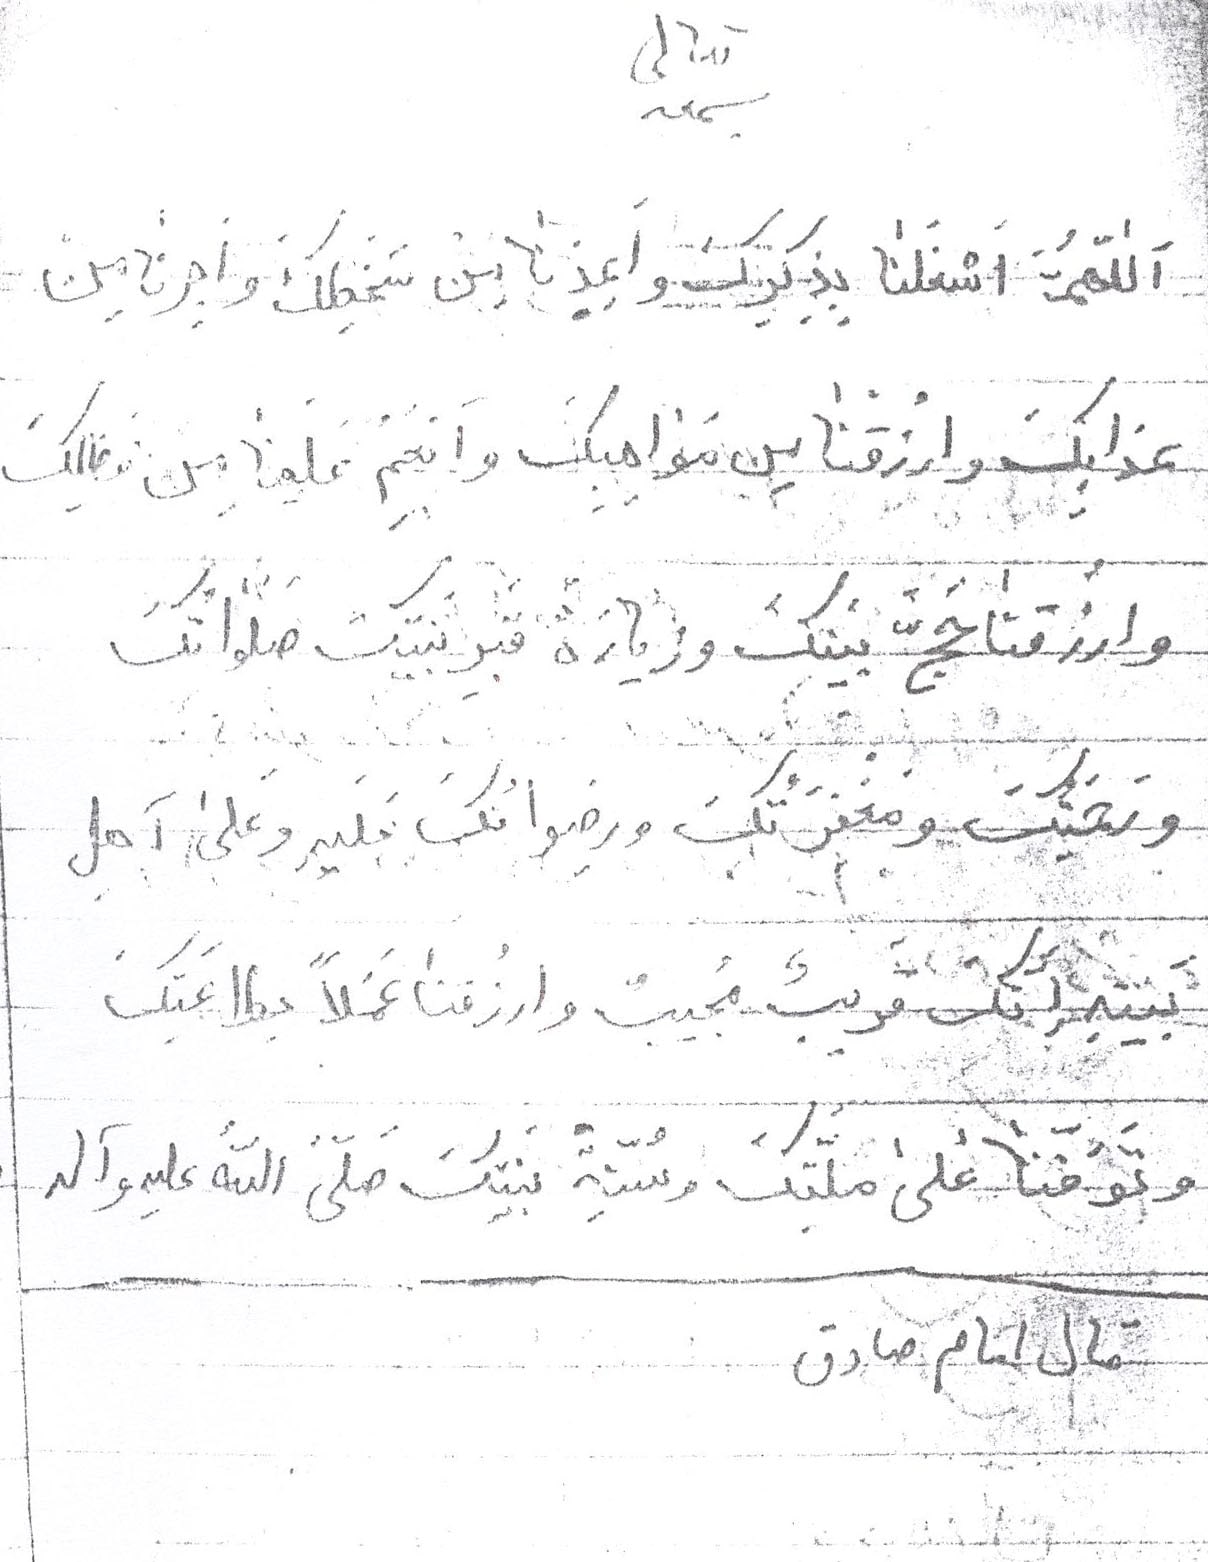 بسمه تعالی
اَللّٰهُمَّ اَشْغَلنٰا بِذِكرِكَ وَاَعِذنٰا مِنْ سَخَطِكَ وَاَجِرنٰا مِنْ
عَذابِكَ وارْزُقْنٰا مِن مَوٰاهِبِكَ وَاَنعِمْ عَلَینٰا مِن فَضلِكَ
وارْزُقنٰا حَجَّ بَیتِكَ وزِیٰارَةَ قَبرِ نَبیِّكَ صَلَوٰاتُكَ
وَرَحمَتُكَ ومَغفِرَتُكَ ورِضوانُكَ عَلَیهِ وَعَلیٰ اَهلِ
بَیتِهِ اِنَّكَ قَریبٌ مُجیبٌ وارزُقنٰا عَمَلاً بِطاعَتِكَ
وتَوَفَّنٰا عَلیٰ مِلَّتِكَ وسُنَّةِ نَبیِّكَ صَلَّیَ اللّهُ علیه وآله
قال امام صادق